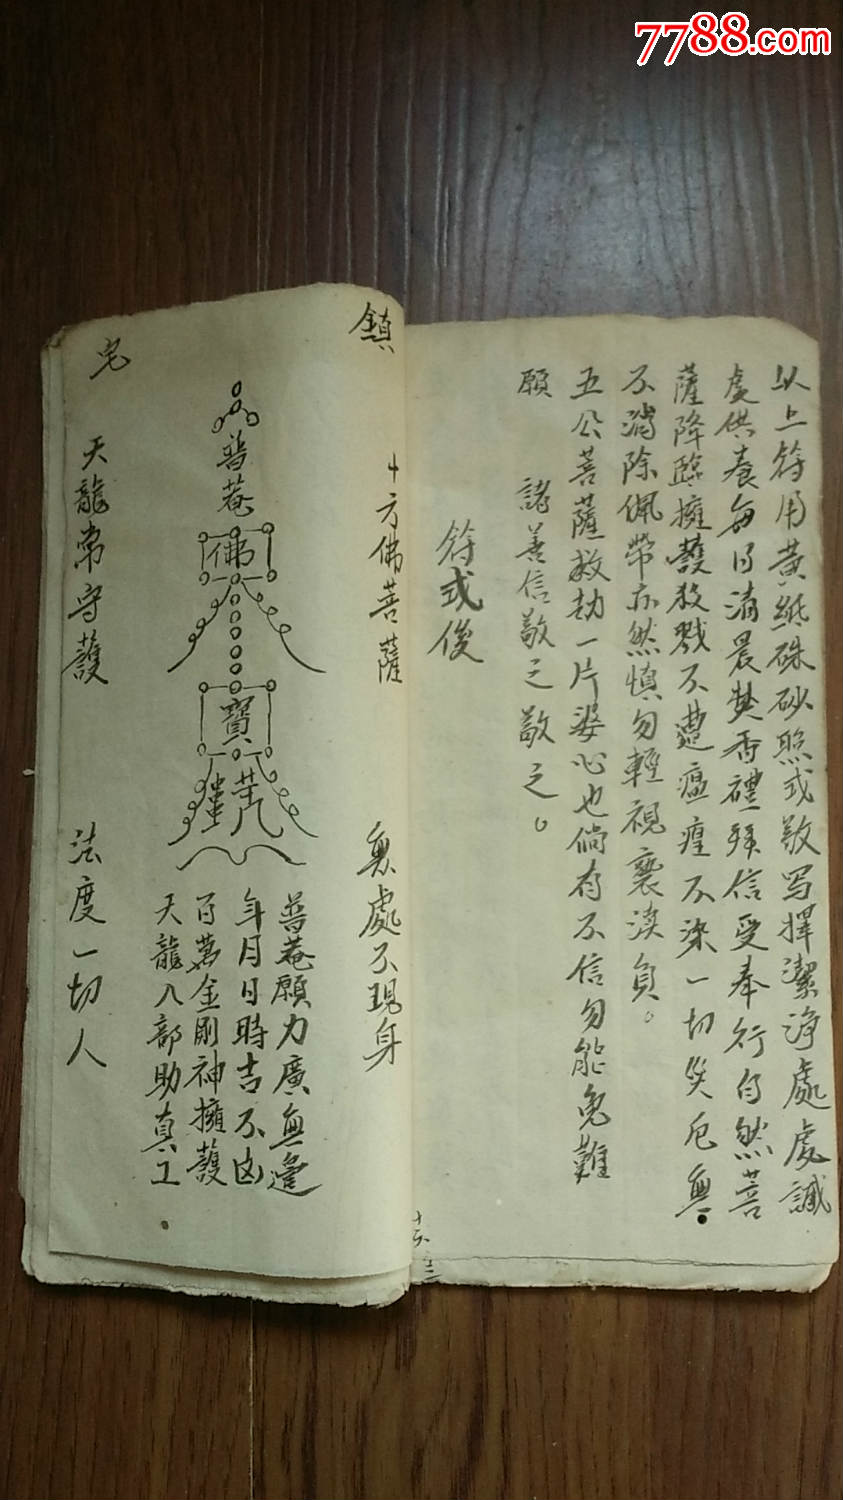 7788.com
以上符用黃紙硃砂照式敬写擇潔淨處處
處供養每日清晨焚香禮拜信受奉行自然菩
薩降臨擁護殺戮不遭瘟瘽不染一切災厄無
不消除佩帶亦然慎勿輕視褻瀆負。
五公菩薩救劫一片婆心也倘有不信勿能免難
願 諸善信敬之敬之。
符式後
鎮
十方佛菩薩 無處不現身
普菴
佛
寶
普菴願力廣無邊
年月日時吉不凶
百萬金剛神擁護
天龍八部助真工
宅
天龍常守護 法度一切人